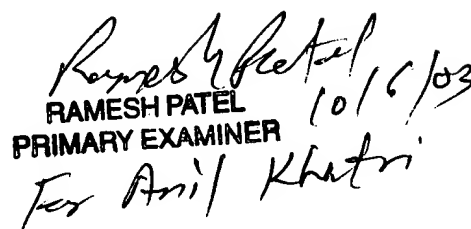 Ramesh Patel
RAMESH PATEL 10/6/03
PRIMARY EXAMINER
For Anil Khatri